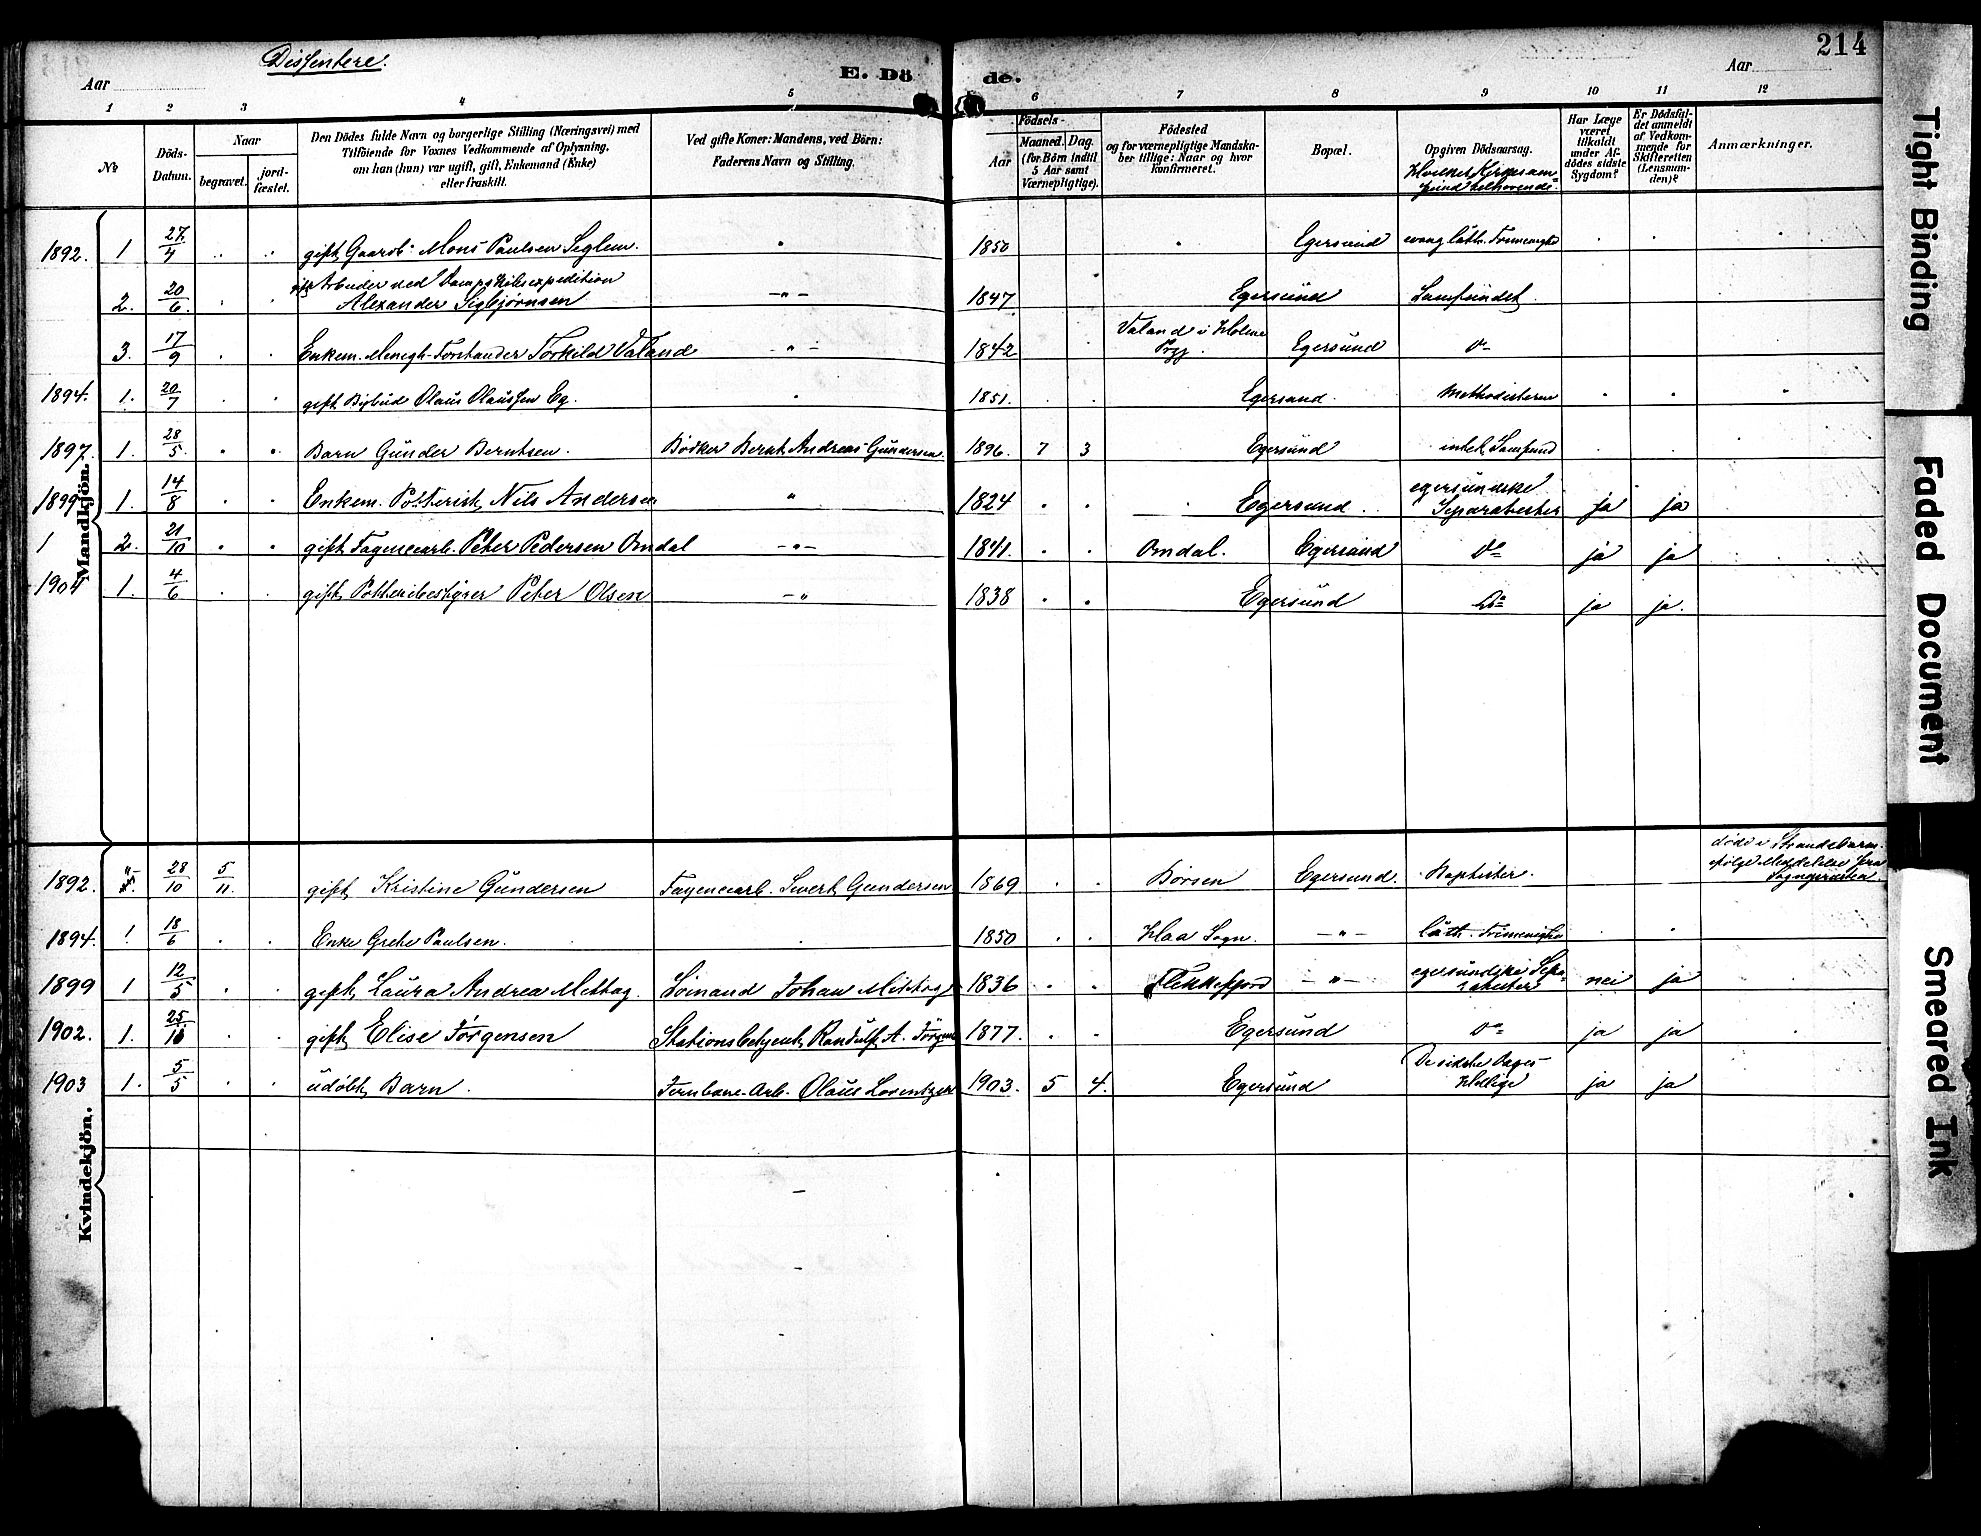 Dissentere.
E. Dö
de.
214
Aar
Aar
1 2 3 4 5 6 7 8 9 10 11 12
No
Döds-Datum.
Naar
begravet.
jord-fæstet.
Den Dödes fulde Navn og borgerlige Stilling (Næringsvei) med
Tilföiende for Voxnes Vedkommende af Oplysning,
om han (hun) var ugift, gift, Enkemand (Enke)
eller fraskilt.
Ved gifte Koner: Mandens, ved Börn:
Faderens Navn og Stilling.
Födsels-
Aar
Maaned. Dag.
(for Börn indtil
5 Aar samt
Værnepligtige).
Födested
og for værnepligtige Mandska-
ber tillige: Naar og hvor
konfirmeret.
Bopæl.
Opgiven Dödsaarsag.
Hvilket Kirkesam-
fund tilhørende.
Har Læge
været
tilkaldt
under Af-
dødes sidste
Sygdom?
Er Dödsfal-
det anmeldt
af Vedkom-
mende for
Skifteretten
(Lensman-
den)?
Anmærkninger.
Mandkjön.
1892. 1 27/4 gift Gaardb. Mons Paulsen Seglem. " 1850 " Egersund evang luth. Frimenighd
2. 20/6. gift Arbeider ved Dampskibsexpedition
Alexander Sigbjørnsen -"- 1847 Egersund Samfundet
3. 17/9 Enkem. Menigh. Forstander Torkild Valand -"- 1842 Valand i Holme
Prgj. Egersund do
1894. 1. 20/7 gift Bybud Olaus Olaussen Eg. 1851. Egersund. Methodisterne
1897. 1. 28/5 Barn Gunder Berntsen. Bødker Bernt Andreas Gundersen. 1896. 7 3 Egersund intet Samfund
1899. 1. 14/8 Enkem. Potterisk, Nils Andersen " 1824 Egersund. egersundske
Separatister ja ja
2. 21/10 gift Fagencearb. Peter Pedersen Omdal -"- 1841. Omdal. Egersund do ja ja
1904 1. 4/6 gift Potteribestyrer Peter Olsen -" 1838 Egersund Do ja ja.
Kvindekjön.
1892. 28/10 5/11. gift Kristine Gundersen Fagencearb. Sivert Gundersen 1869 Børsen Egersund. Baptister. døde i Strandebarm
ifølge Meddelelse fra
Sognepresten.
1894. 1 18/6 Enke Grete Paulsen. 1850 Haa Sogn. -"- luth. Frimenighd
1899 1 12/5 gift Laura Andrea Mittag. Lóinand Johan Mittag 1836 Flekkefjord -"- egersundske Sepa-
ratister nei ja
1902. 1. 25/11 gift Elise Jørgensen Stationsbetjent Randulf A. Jørgens 1877. Egersund do ja ja
1903 1. 5/5 udøbt Barn. Jernbane-Arb. Olaus Lorentzen 1903. 5 4. Egersund De sidste Dages
Hellige ja ja
Tight Binding
Faded Document
Smeared Ink